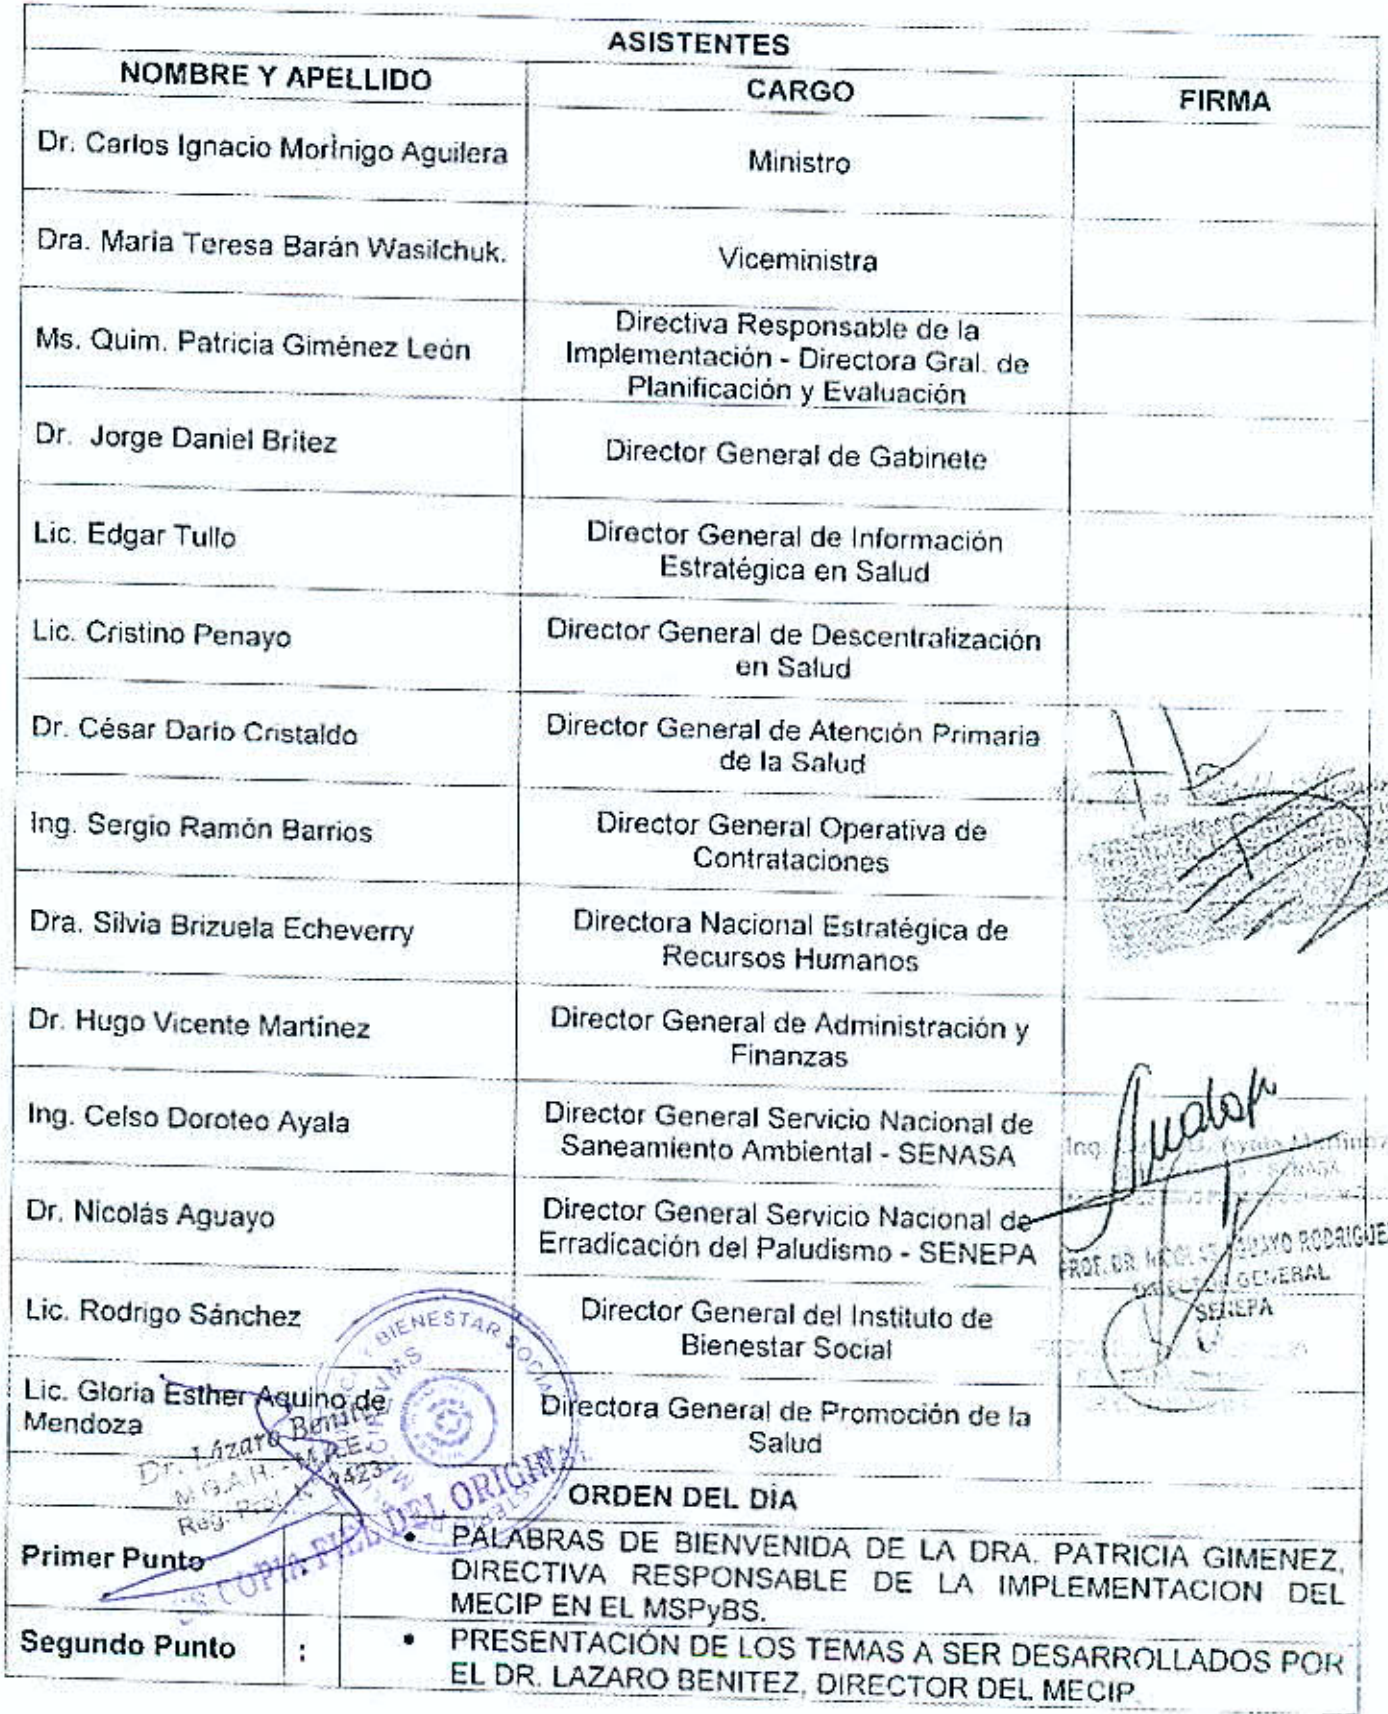 ASISTENTES
NOMBRE Y APELLIDO
CARGO
FIRMA
Dr. Carlos Ignacio Morínigo Aguilera
Ministro
Dra. Maria Teresa Barán Wasilchuk.
Viceministra
Ms. Quim. Patricia Giménez León
Directiva Responsable de la
Implementación - Directora Gral. de
Planificación y Evaluación
Dr. Jorge Daniel Britez
Director General de Gabinete
Lic. Edgar Tullo
Director General de Información
Estratégica en Salud
Lic. Cristino Penayo
Director General de Descentralización
en Salud
Dr. César Dario Cristaldo
Director General de Atención Primaria
de la Salud
Ing. Sergio Ramón Barrios
Director General Operativa de
Contrataciones
Dra. Silvia Brizuela Echeverry
Directora Nacional Estratégica de
Recursos Humanos
Dr. Hugo Vicente Martinez
Director General de Administración y
Finanzas
Ing. Celso Doroteo Ayala
Director General Servicio Nacional de
Saneamiento Ambiental - SENASA
Ing. Ayala Martinez
SENASA
Dr. Nicolás Aguayo
Director General Servicio Nacional de
Erradicación del Paludismo - SENEPA
PROF. DR. NICOLAS AGUAYO RODRIGUE
DIRECTOR GENERAL
SENEPA
Lic. Rodrigo Sánchez
Director General del Instituto de
Bienestar Social
BIENESTAR SOCIAL
Lic. Gloria Esther Aquino de
Mendoza
Directora General de Promoción de la
Salud
Dr. Lázaro Benitez
M.G.A.H. - M.R.E.
Reg. Prof. N° 3423
ES COPIA FIEL DEL ORIGINAL
ORDEN DEL DÍA
Primer Punto
:
• PALABRAS DE BIENVENIDA DE LA DRA. PATRICIA GIMENEZ,
DIRECTIVA RESPONSABLE DE LA IMPLEMENTACION DEL
MECIP EN EL MSPyBS.
Segundo Punto
:
• PRESENTACIÓN DE LOS TEMAS A SER DESARROLLADOS POR
EL DR. LAZARO BENITEZ, DIRECTOR DEL MECIP.